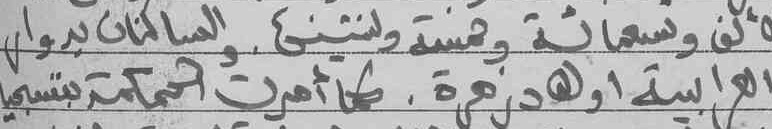 ألف وتسعمائة وخمسة وثنتين . والساكنان بدوار
العرابية اولاد زهرة . كما أمرت المحكمة بتسجيل